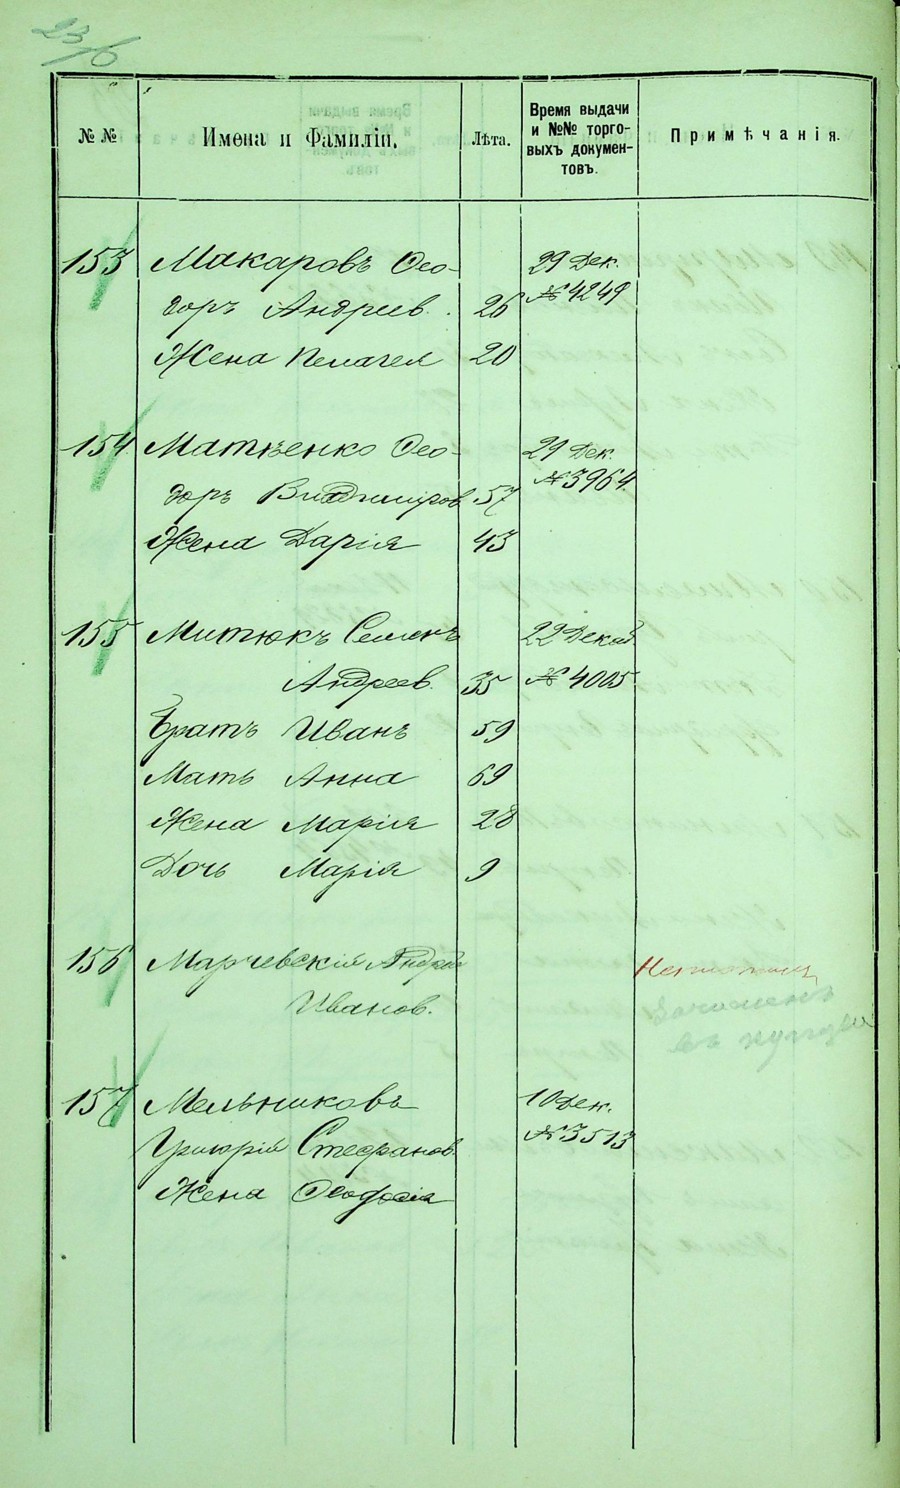 №№ Имена и Фамиліи. Лѣта. Время выдачи и №№ торговыхъ документовъ. Примѣчанія.
153 Макаровъ Ѳео- 29 Дек.
доръ Андреев. 26 № 4249
Жена Пелагея 20
154 Матвенко Ѳео- 29 Дек.
доръ Владиміров 57 № 3964
Жена Дарія 43
155 Митюкъ Семенъ 22 Декаб.
Андреев. 35 № 4005
Братъ Иванъ 59
Мать Анна 69
Жена Марія 28
Дочь Марія 9
156 Марчевскій Андрей
Иванов.
Зачисленъ
въ купцы
157 Мельниковъ 10 Дек.
Григорій Стефанов. № 3513
Жена Ѳеодосія